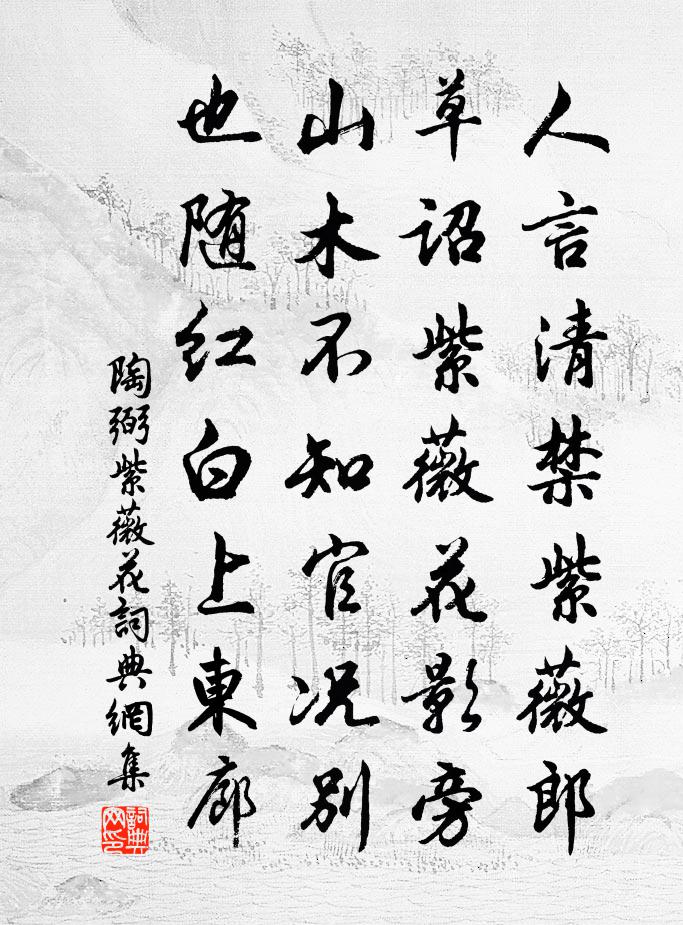 人言清禁紫薇郎
草詔紫薇花影旁
山木不知官況別
也随紅白上東廊
陶弼紫薇花詞典網集
詞典
网印